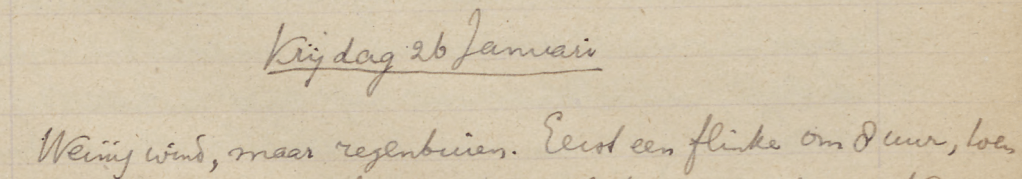 Vrijdag 26 Januari
Weinig wind, maar regenbuien. Eerst een flinke om 8 uur, toen